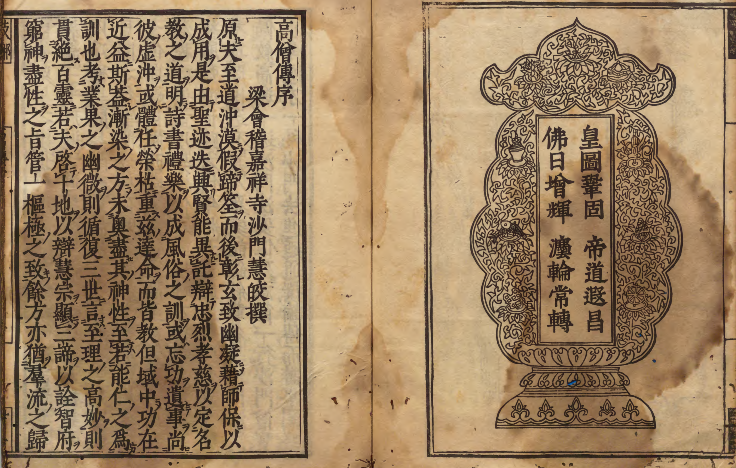 皇圖鞏固 帝道遐昌
佛日增輝 灋輪常轉
高僧傳序
梁會稽嘉祥寺沙門慧皎撰
原夫至道沖漠假蹄筌而後彰玄致幽凝藉師保以
成用是由聖迹迭興賢能異託辯忠烈孝慈以定名
敎之道明詩書禮樂以成風俗之訓或忘功遺事尚
彼虛沖或體任榮枯重茲達命而皆敎但域中功在
近益斯蓋漸染之方未奧盡其神性至若能仁之爲
訓也考業果之幽微則循復三世言至理之高妙則
貫絕百靈若夫啓十地以辯慧宗顯二諦以詮智府
窮神盡性之旨管一樞極之致餘方亦猶羣流之歸